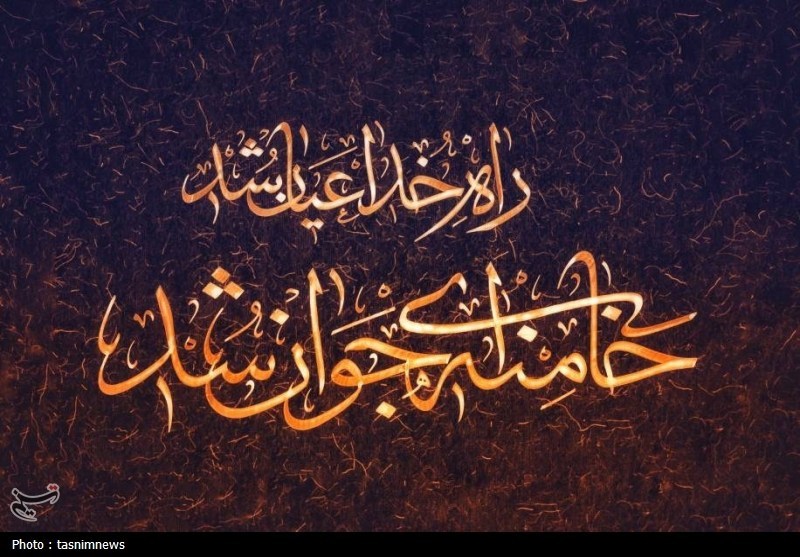 راهِ خدا عیان بشد
خامنه‌ای جوان شد
تسنیم
Photo : tasnimnews